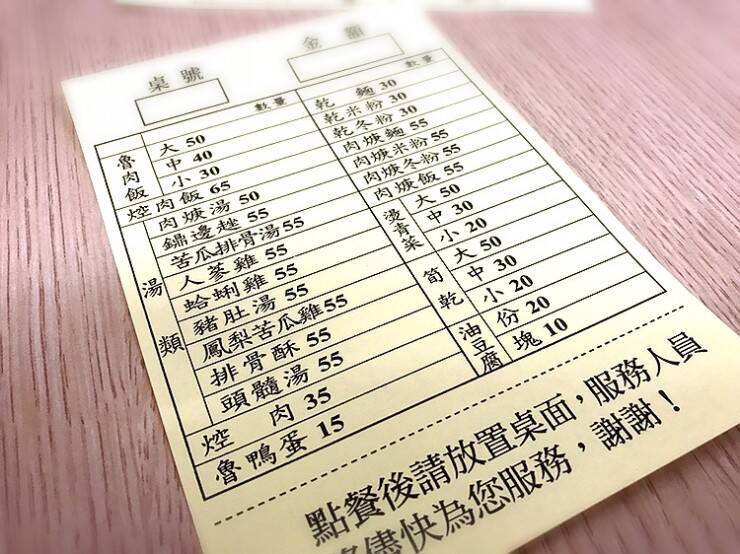 桌號
金額
數量
魯肉飯
大 50
中 40
小 30
焢肉飯 65
湯類
肉焿湯 50
鏽邊趖 55
苦瓜排骨湯 55
人蔘雞 55
蛤蜊雞 55
豬肚湯 55
鳳梨苦瓜雞 55
排骨酥 55
頭髓湯 55
焢肉 35
魯鴨蛋 15
數量
乾麵 30
乾米粉 30
乾冬粉 30
肉焿麵 55
肉焿米粉 55
肉焿冬粉 55
肉焿飯 55
燙青菜
大 50
中 30
小 20
筍乾
大 50
中 30
小 20
油豆腐
份 20
塊 10
點餐後請放置桌面，服務人員
儘快為您服務，謝謝！